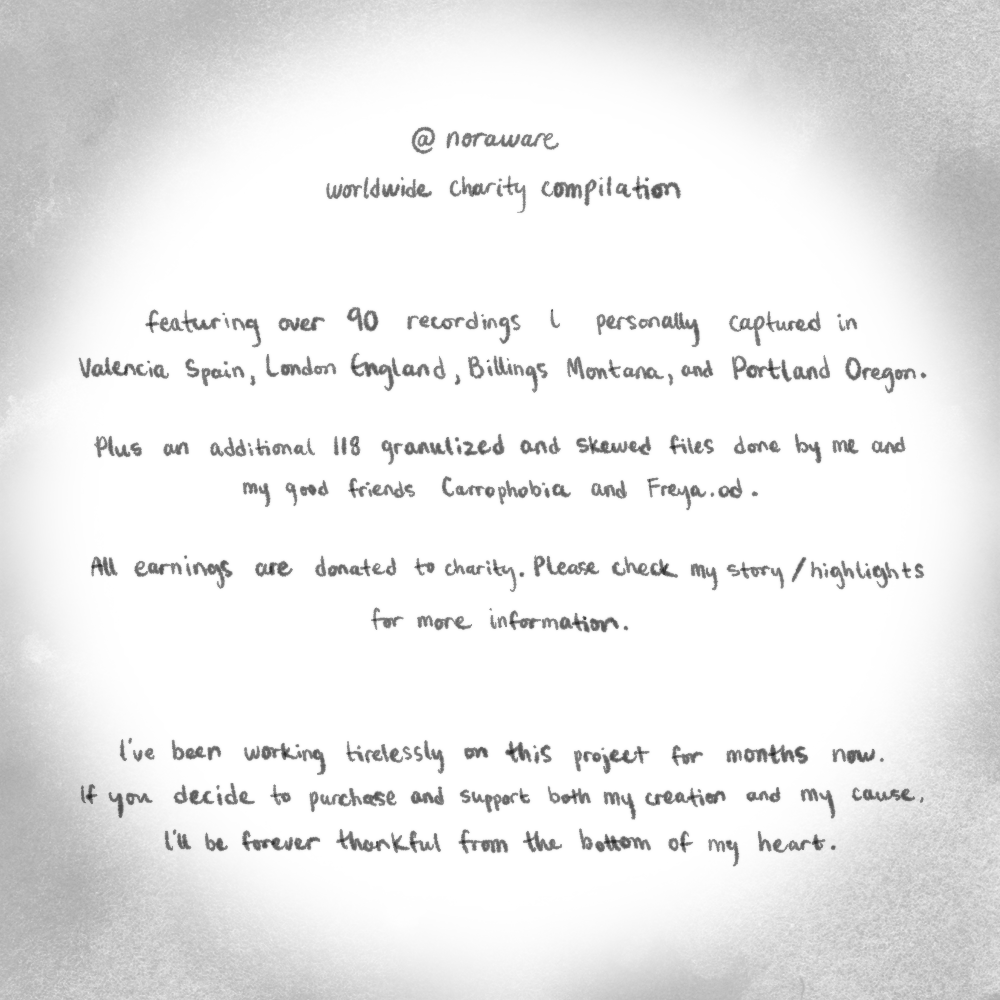 @noraware
worldwide charity compilation
featuring over 90 recordings I personally captured in
Valencia Spain, London England, Billings Montana, and Portland Oregon.
Plus an additional 118 granulized and skewed files done by me and
my good friends Carrophobia and Freya.od.
All earnings are donated to charity. Please check my story/highlights
for more information.
I've been working tirelessly on this project for months now.
If you decide to purchase and support both my creation and my cause,
I'll be forever thankful from the bottom of my heart.